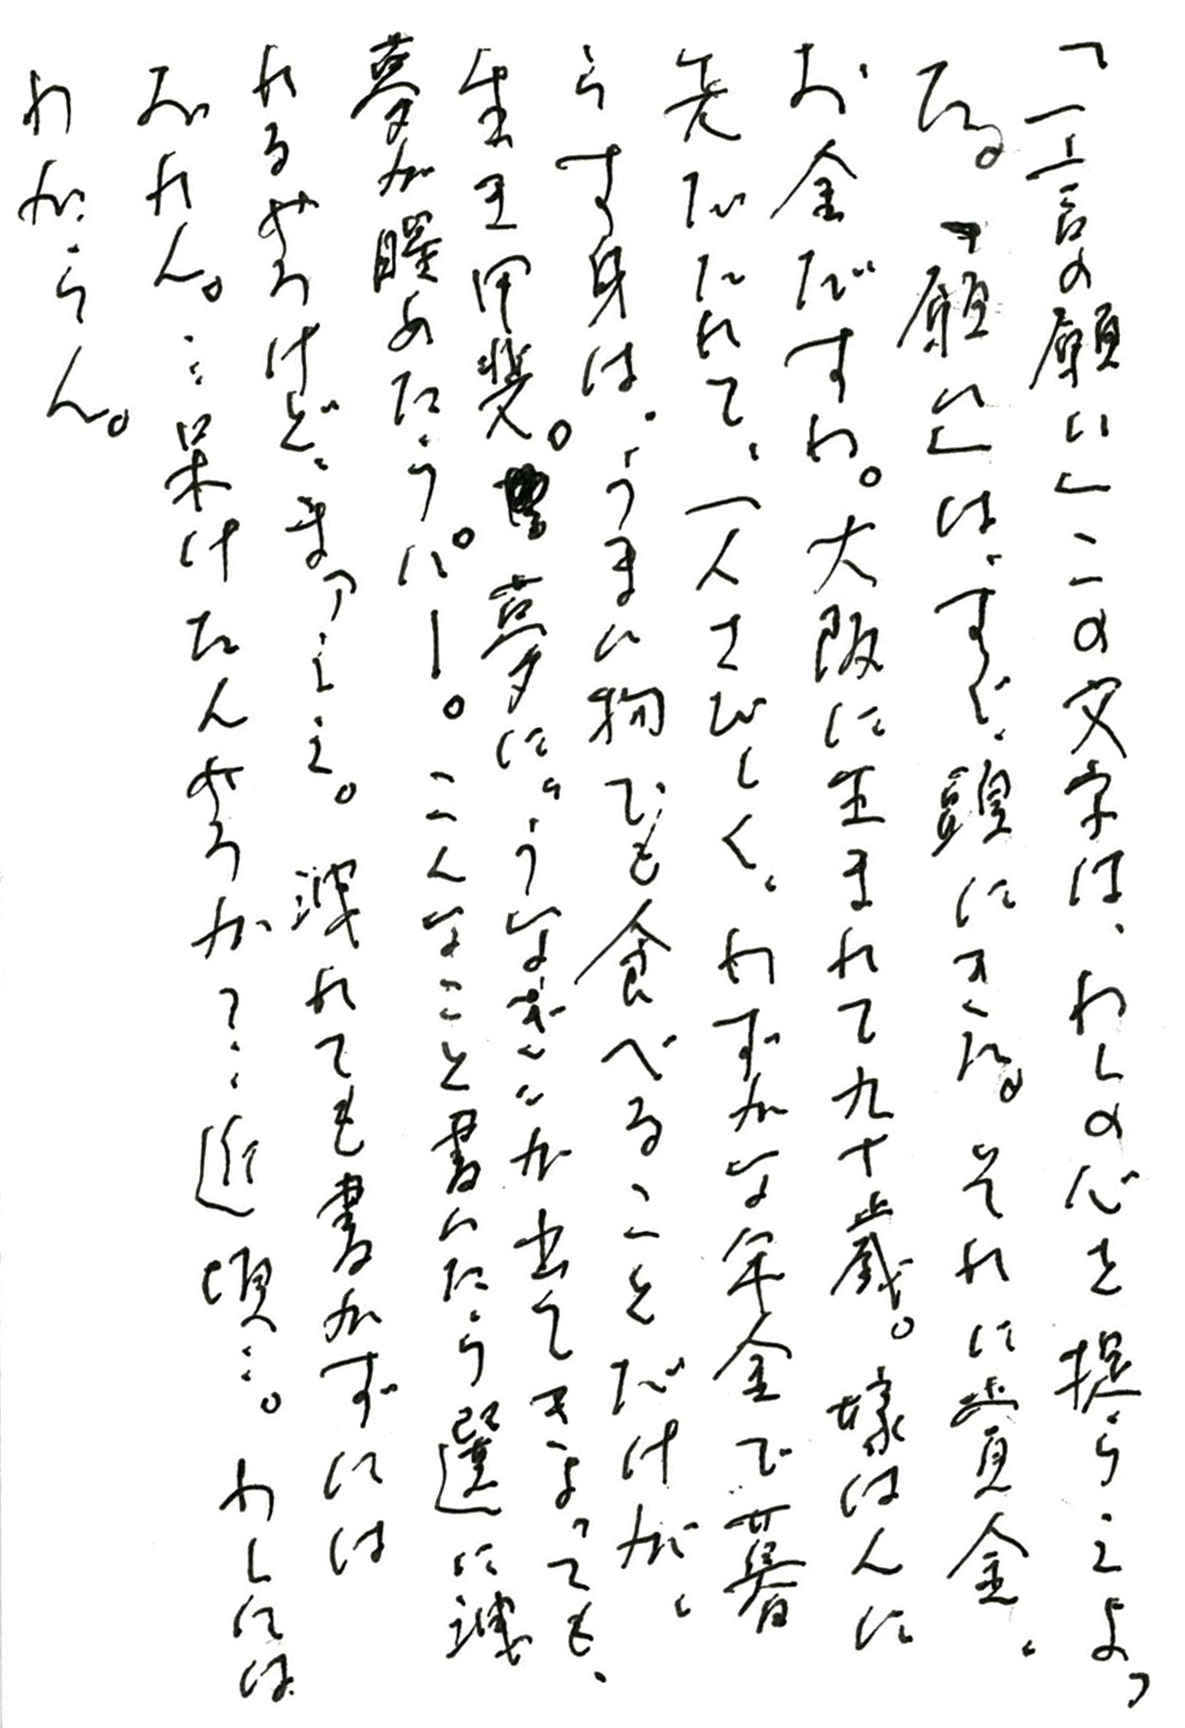 「一言の願い」この文字は、わしの心を捉らえよっ
た。「願い」は、すぐ、頭にきた。それに賞金、
お金だすわ。大阪に生まれて九十歳。嫁はんに
先だたれて、一人さびしく、わずかな年金で暮
らす身は、うまい物でも食べることだけが、
生き甲斐。夢に、うなぎ…が出てきよっても、
夢が醒めたらパー。こんなこと書いたら選に洩
れるやろけど、まァええ。洩れても書かずには
おれん。…呆けたんやろか?…近頃…。わしには
わからん。